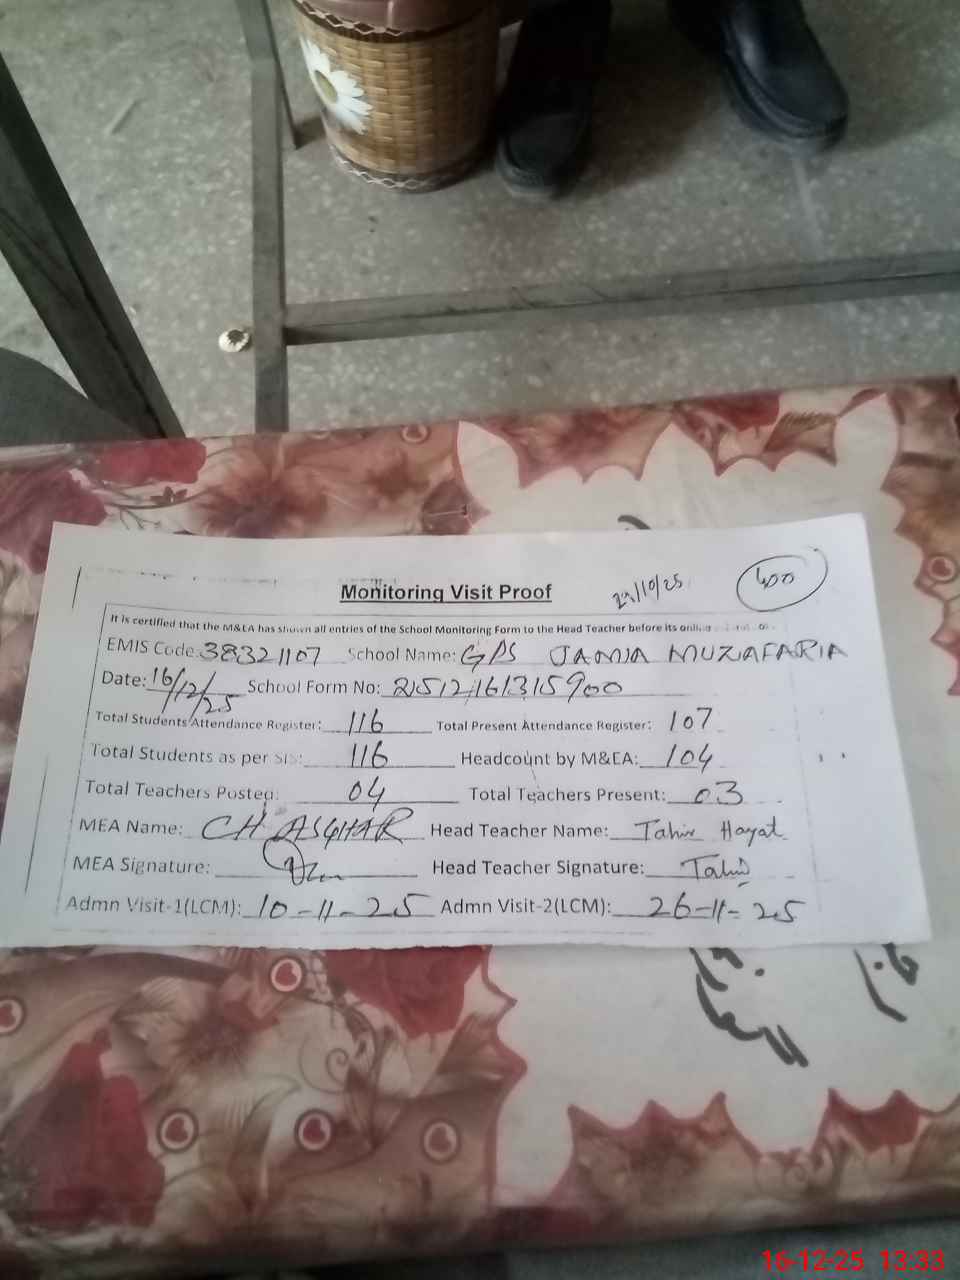 Monitoring Visit Proof
29/10/25
400
It is certified that the M&EA has shown all entries of the School Monitoring Form to the Head Teacher before its online
EMIS Code: 38321107 School Name: GPS JAMIA MUZAFARIA
Date: 16/12/25 School Form No: 21512161315900
Total Students Attendance Register: 116 Total Present Attendance Register: 107
Total Students as per SIS: 116 Headcount by M&EA: 104
Total Teachers Posted: 04 Total Teachers Present: 03
MEA Name: CH ASGHAR Head Teacher Name: Tahir Hayat
MEA Signature: Head Teacher Signature: Tahir
Admn Visit-1(LCM): 10-11-25 Admn Visit-2(LCM): 26-11-25
16-12-25 13:33